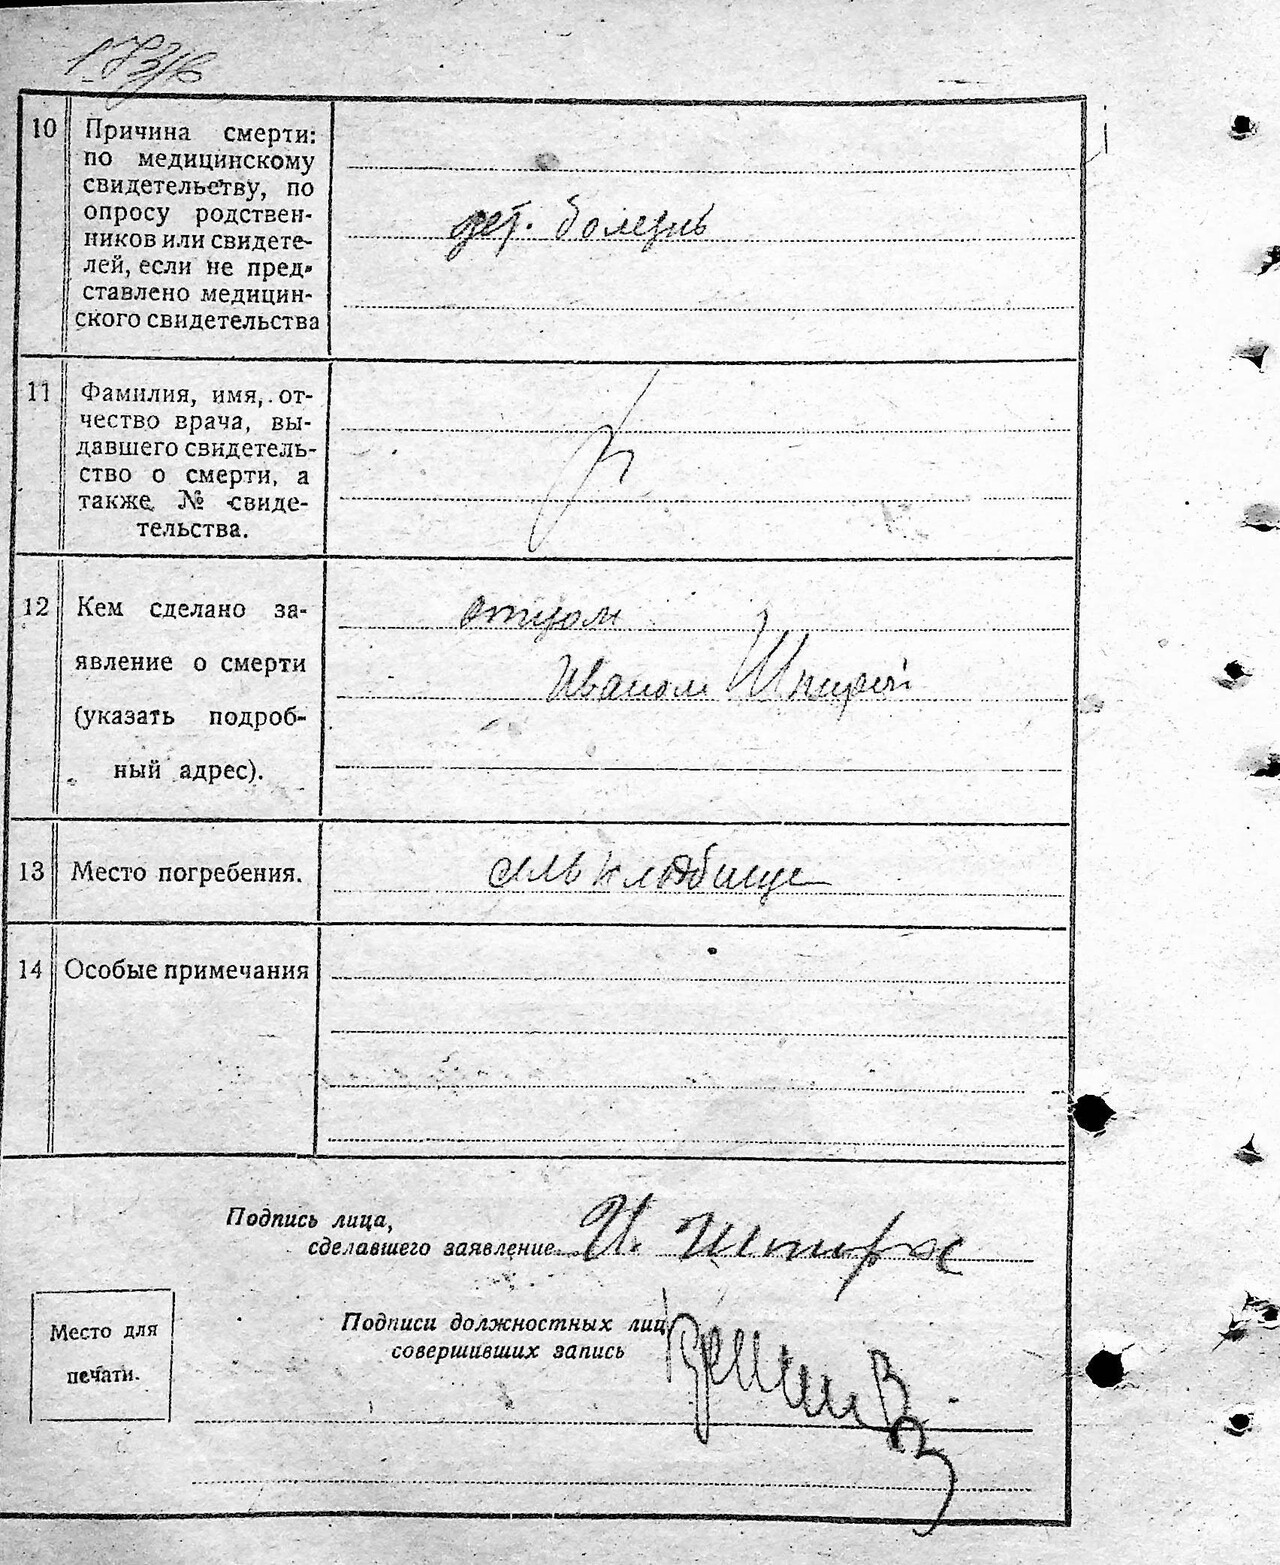 10
Причина смерти:
по медицинскому
свидетельству, по
опросу родствен-
ников или свидете-
лей, если не пред-
ставлено медицин-
ского свидетельства
дет. болезнь
11
Фамилия, имя, от-
чество врача, вы-
давшего свидетель-
ство о смерти, а
также № свиде-
тельства.
12
Кем сделано за-
явление о смерти
(указать подроб-
ный адрес).
отцом
Иваном
13
Место погребения.
кладбище
14
Особые примечания
Подпись лица,
сделавшего заявление
И.
Подписи должностных лиц,
совершивших запись
Место для
печати.